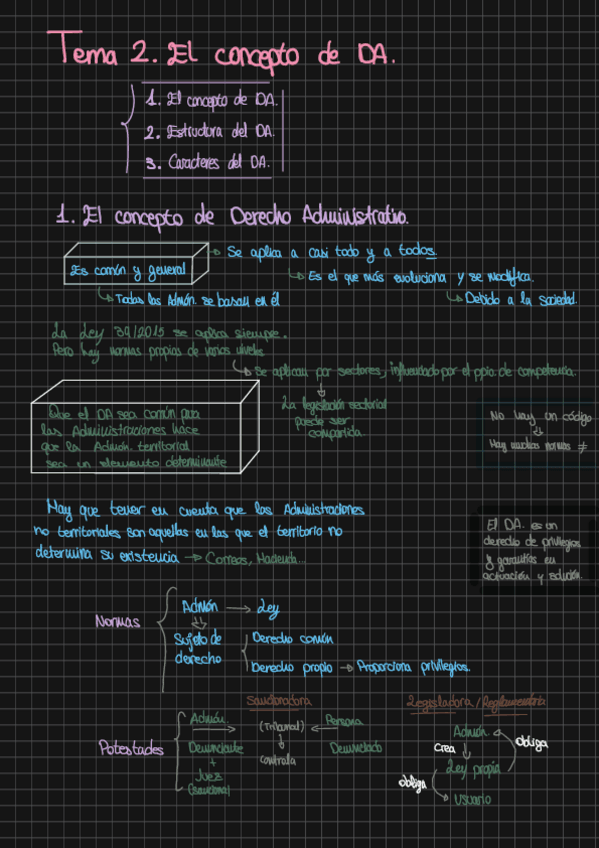 Tema 2. El concepto de DA.
1. El concepto de DA.
2. Estructura del DA.
3. Caracteres del DA.
1. El concepto de Derecho Administrativo.
Es común y general
→ Se aplica a casi todo y a todos.
→ Es el que más evoluciona y se modifica.
→ Todas las Admón. se basan en él
→ Debido a la sociedad.
La Ley 39/2015 se aplica siempre.
Pero hay normas propias de varios niveles
→ Se aplican por sectores, influenciado por el ppio. de competencia.
La legislación sectorial
puede ser
compartida.
Que el DA sea común para
las Administraciones hace
que la Admón. territorial
sea un elemento determinante
No hay un código
Hay muchas normas ≠
Hay que tener en cuenta que las Administraciones
no territoriales son aquellas en las que el territorio no
determina su existencia → Correos, Hacienda...
El DA. es un
derecho de privilegios
y garantías en
actuación y
Normas
Admón → Ley
Sujeto de
derecho
Derecho común
Derecho propio → Proporciona privilegios.
Potestades
Sancionadora
Admón. → (Tribunal) ← Persona
Denunciante
+
Juez
(Sancional)
controla
Denunciado
Legisladora / Reglamentaria
Admón.
crea
obliga
Ley propia
obliga
Usuario